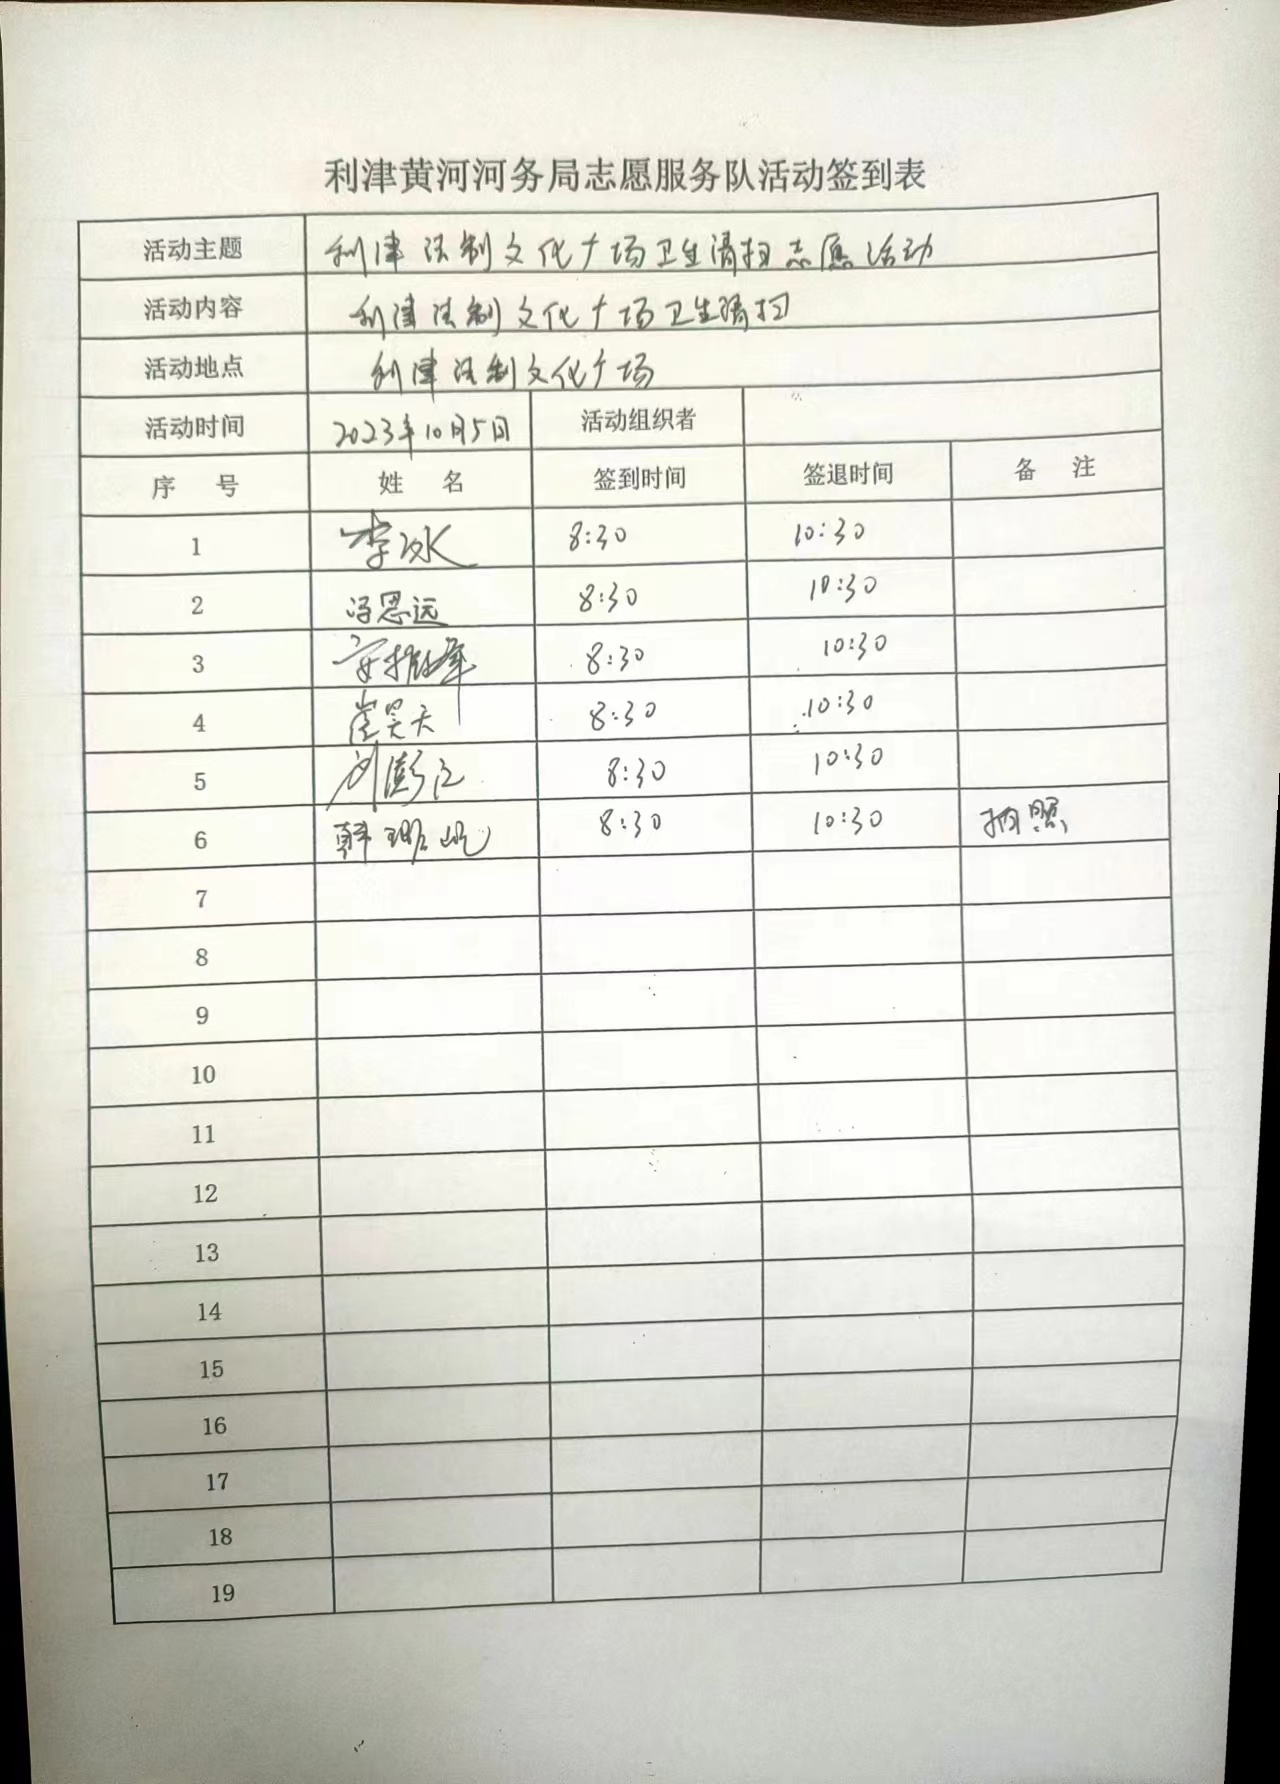 利津黄河河务局志愿服务队活动签到表
活动主题 利津法制文化广场卫生清扫志愿活动
活动内容 利津法制文化广场卫生清扫
活动地点 利津法制文化广场
活动时间 2023年10月5日 活动组织者
序 号 姓 名 签到时间 签退时间 备 注
1 李冰 8:30 10:30
2 冯思远 8:30 10:30
3 8:30 10:30
4 崔昊天 8:30 10:30
5 刘澎江 8:30 10:30
6 韩 8:30 10:30 拍照
7
8
9
10
11
12
13
14
15
16
17
18
19